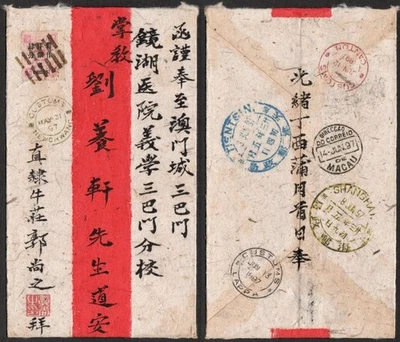 函謹奉至澳門城三巴門
鏡湖医院義學三巴門分校
掌教
劉養軒先生道安
直隸牛莊郭尚之拜
CUSTOMS
97
光緒丁酉蒲月首日奉
CANTON
TIENTSIN
DO CORREIO
14-JUN.97
DE
MACAU
SHANGHAI
CUSTOMS
JUN